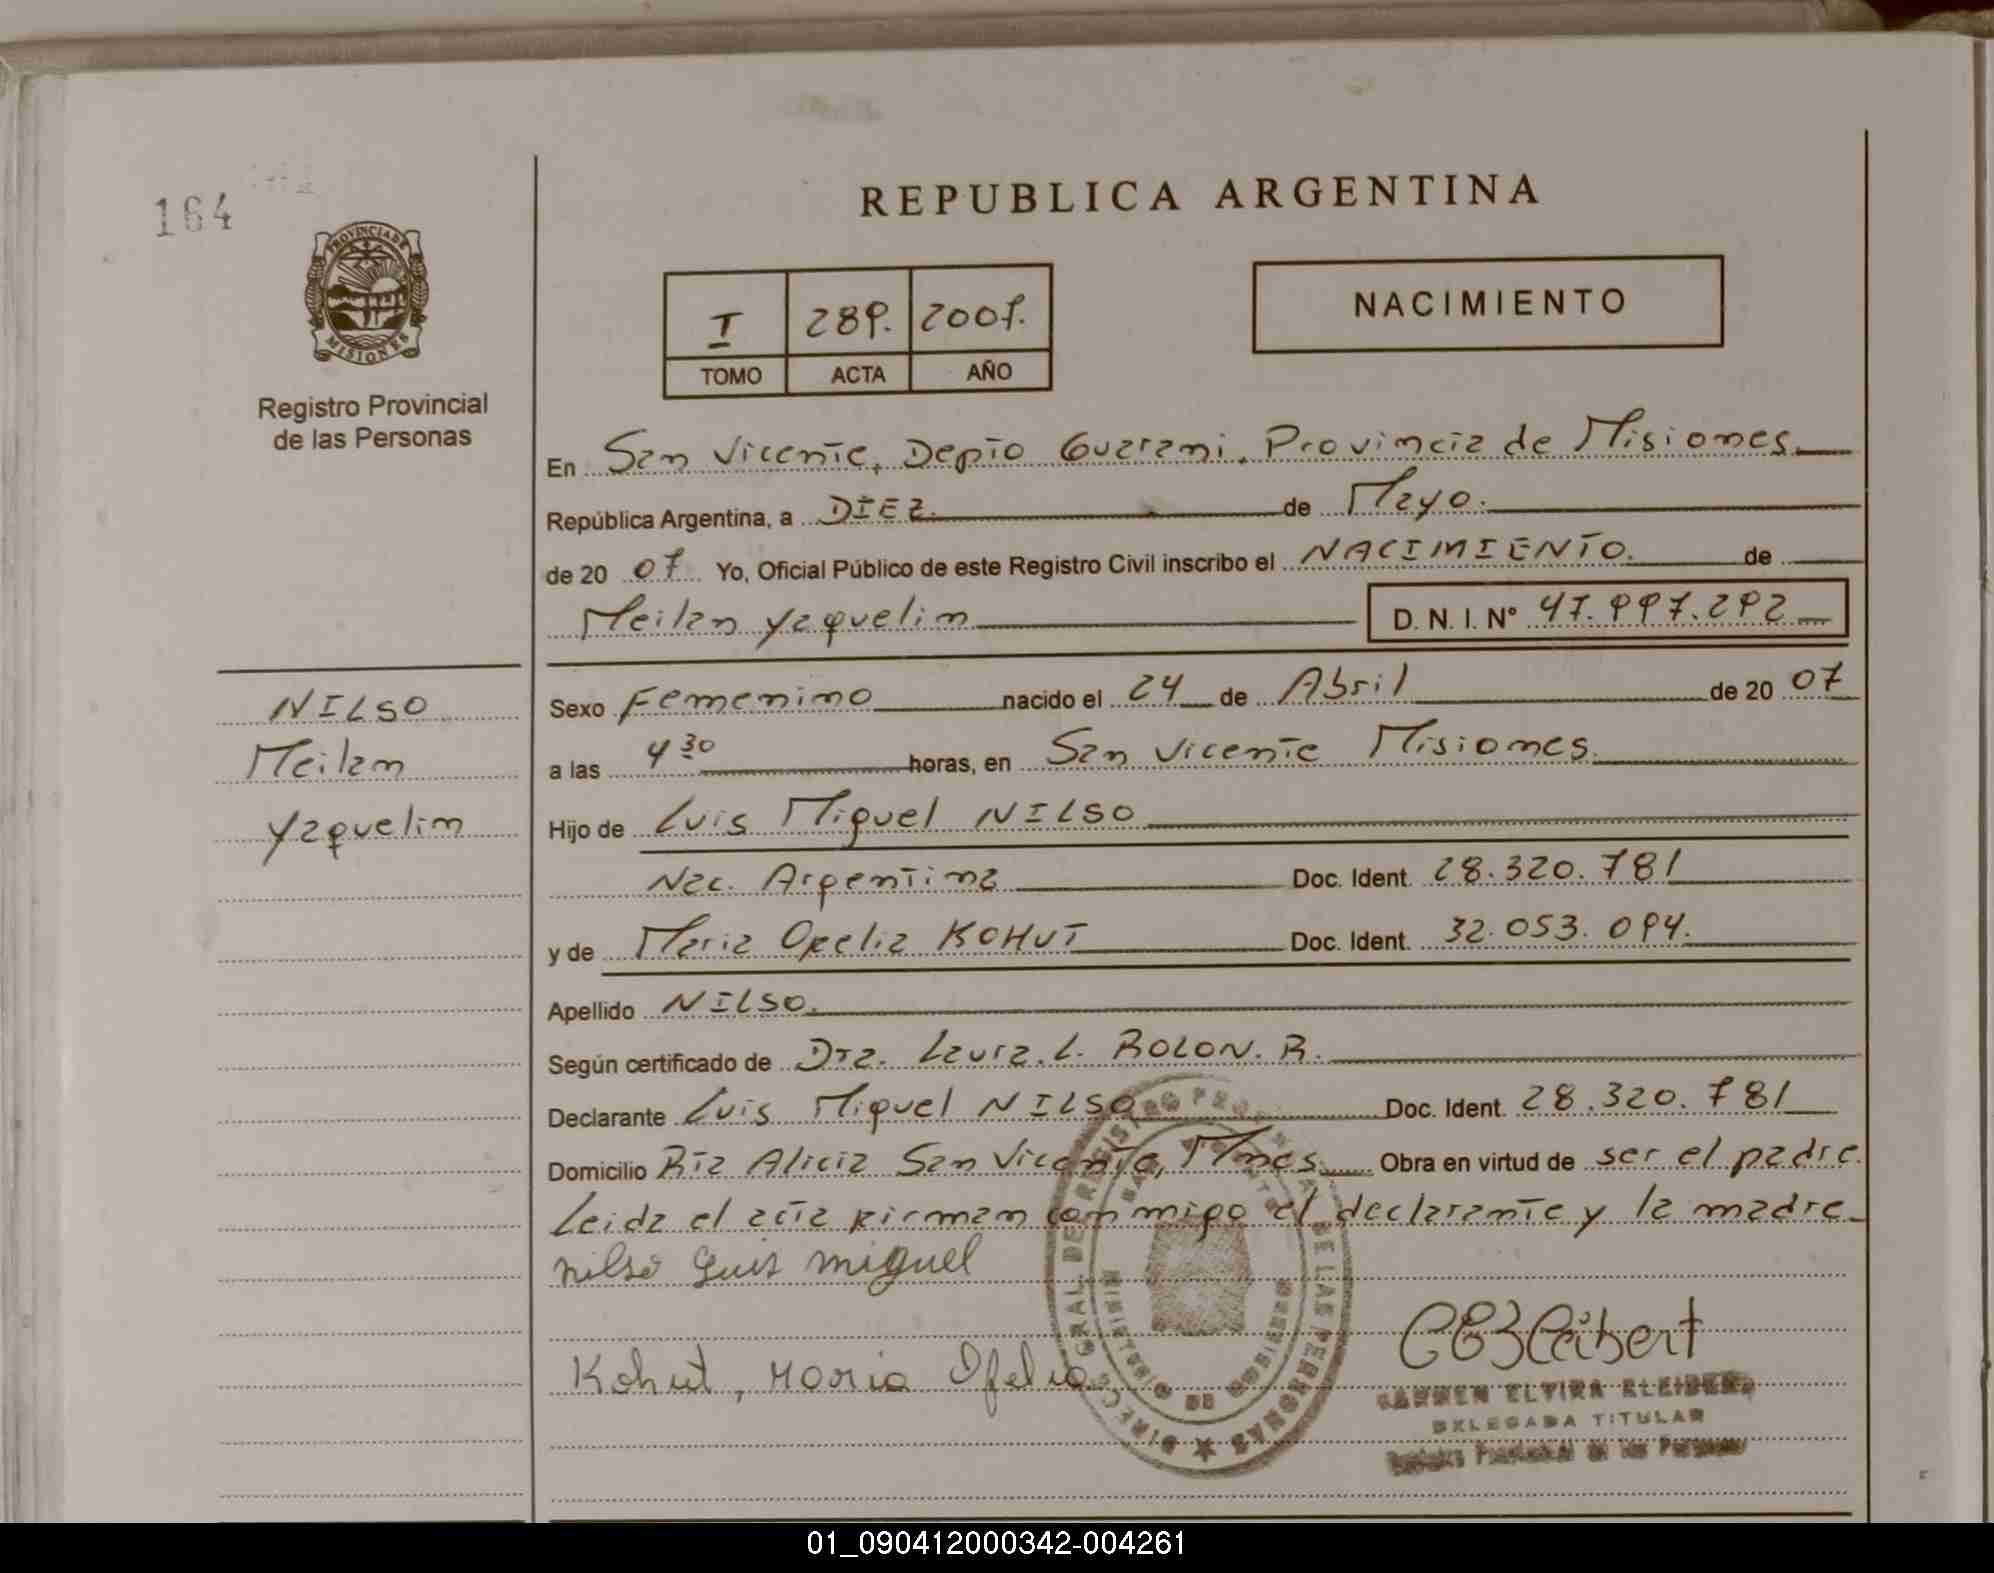 164
REPUBLICA ARGENTINA
PROVINCIA DE
MISIONES
Registro Provincial
de las Personas
I 289. 2007.
TOMO ACTA AÑO
NACIMIENTO
En San Vicente, Depto Guarani. Provincia de Misiones
República Argentina, a DIEZ. de Mayo.
de 20 07 Yo, Oficial Público de este Registro Civil inscribo el NACIMIENTO. de
Meilan Yaquelin D. N. I. N° 47.997.292
NILSO
Meilan
Yaquelin
Sexo Femenino nacido el 24 de Abril de 20 07
a las 4 30 horas, en San Vicente Misiones.
Hijo de Luis Miguel NILSO
Nac. Argentina Doc. Ident. 28.320.781
y de Maria Ofelia KOHUT Doc. Ident. 32.053.094.
Apellido NILSO.
Según certificado de Dra. Laura. L. ROLON. R.
Declarante Luis Miguel NILSO Doc. Ident. 28.320.781
Domicilio Rta Alicia San Vicente, Mnes Obra en virtud de ser el padre.
Leida el acta firman conmigo el declarante y la madre
nilso Luis miguel
Kohut, Maria Ofelia
CARMEN ELVIRA KLEIBERT
DELEGADA TITULAR
Registro Provincial de las Personas
01_090412000342-004261